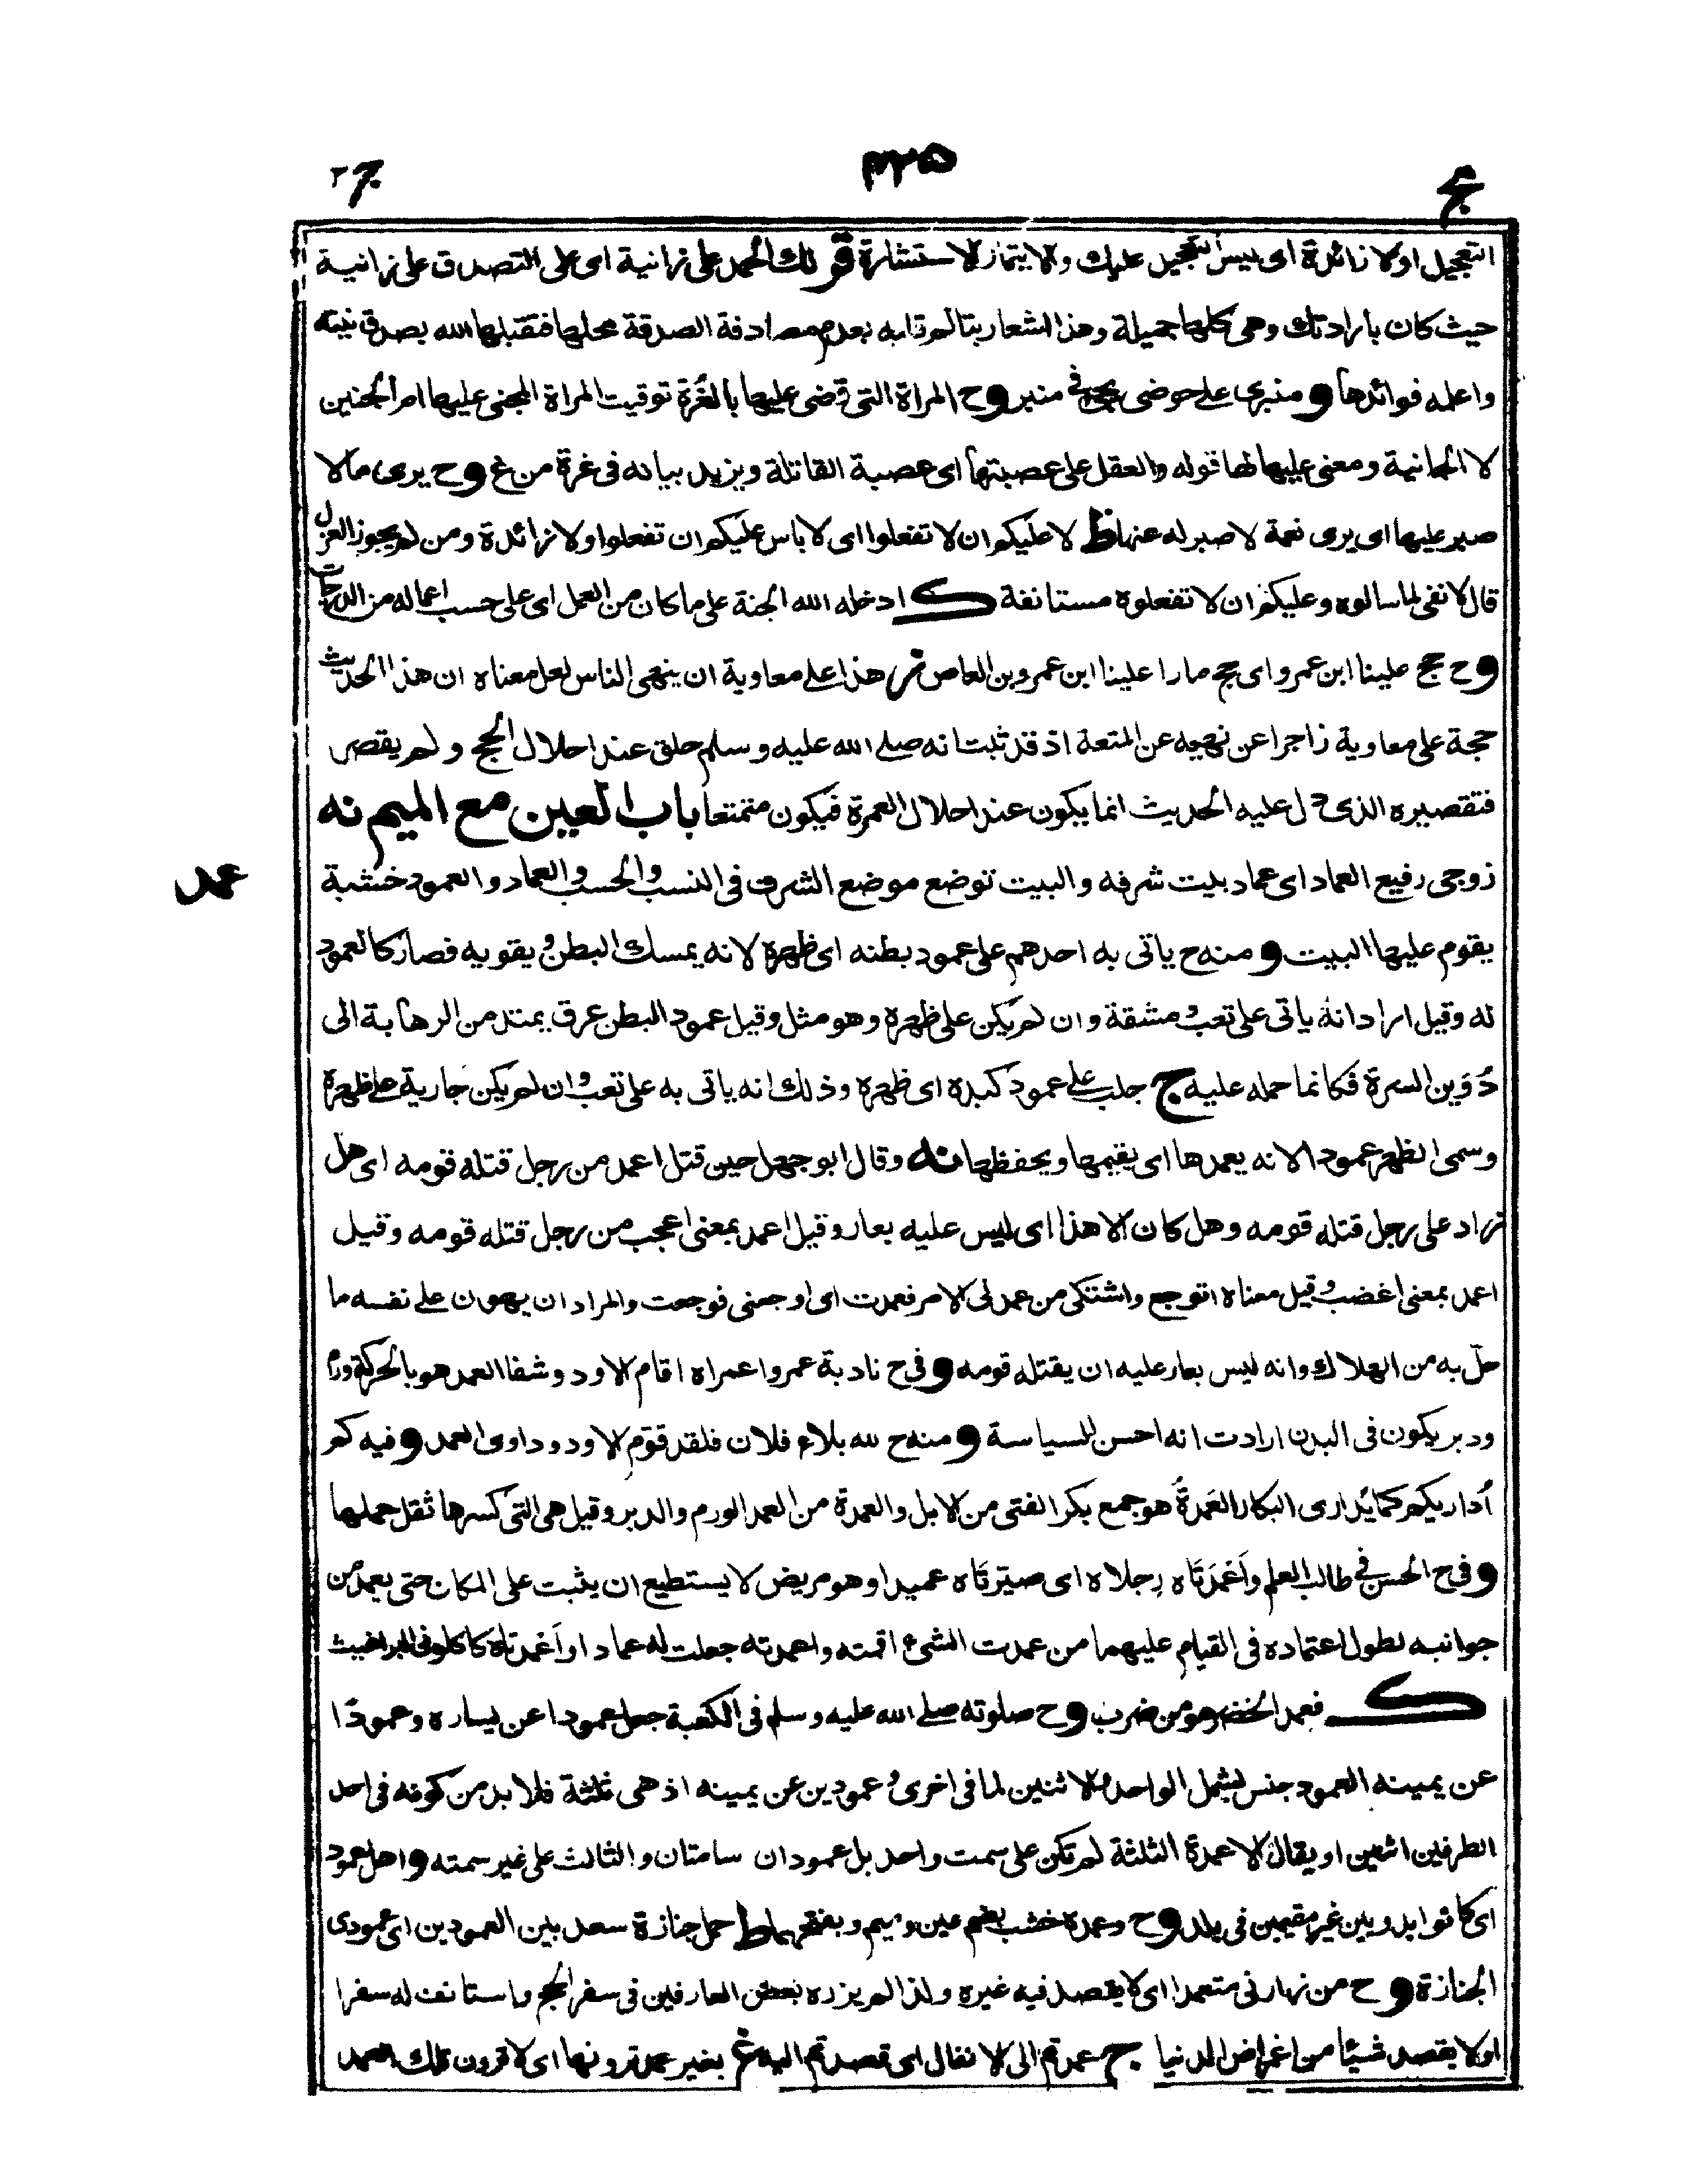 عج ٤٣٥ ج٣
التعجيل اولا زائدة اى ليس التعجيل عليك والا يتماز لاستشارة قو لك الحمد على زانية اى على التصدق على زانية
حيث كان بارادتك وهى كلها جميلة وهذا اشعار بتالم قلبه بعدم مصادفة الصدقة محلها فتقبلها الله بصدق نيته
واعلمه فوائدها و منبرى على حوضى يجئ فى منبر و ح المراة التى قضى عليها بالغرة توقيت المراة المجنى عليها ام الجنين
لا الجانية ومعنى عليها لها قوله والعقل على عصبتها اى عصبة القاتلة ويزيد بيانه فى غرة من غ و ح يرى مالا
صبر عليها اى يرى نعمة لا صبر له عنها ط لا عليكم ان لا تفعلوا اى لا باس عليكم ان تفعلوا ولا زائدة ومن لم يجوز العزل
قال لا نفى لما سالوه وعليكم ان لا تفعلوه مستانفة ك ادخله الله الجنة على ما كان من العمل اى على حسب اعماله من الدرجات
و ح عج علينا ابن عمرو اى عج مارا علينا ابن عمرو بن العاص ن هذا على معاوية ان ينهى الناس لعل معناه ان هذا الحديث
حجة على معاوية زاجرا عن نهيه عن المتعة اذ قد ثبت انه صلے الله عليه وسلم حلق عند احلال الحج ولم يقصر
فتقصيره الذى دل عليه الحديث انما يكون عند احلال العمرة فيكون متمتعا باب العين مع الميم نه
عمد
زوجى رفيع العماد اى عماد بيت شرفه والبيت توضع موضع الشرف فى النسب والحسب والعماد والعمود خشبة
يقوم عليها البيت و منه ح ياتى به احدهم على عمود بطنه اى ظهره لانه يمسك البطن ويقويه فصار كالعمود
له وقيل اراد انه ياتى على تعب ومشقة وان لم يكن على ظهره وهو مثل وقيل عمود البطن عرق يمتد من الرهابة الى
دُوَين السرة فكانما حمله عليه ج جلب على عمود كبده اى ظهره وذلك انه ياتى به على تعب وان لم يكن جارية على ظهره
وسمى الظهر عمودا لانه يعمدها اى يقيمها ويحفظها نه وقال ابو جهل حين قتل اعمد من رجل قتله قومه اى هل
زاد على رجل قتله قومه وهل كان الا هذا اى ليس عليه بعار وقيل اعمد بمعنى اعجب من رجل قتله قومه وقيل
اعمد بمعنى اغضب وقيل معناه اتوجع واشتكى من عمدنى الامر فعمدت اى اوجعنى فوجعت والمراد ان يهون على نفسه ما
حلّ به من الهلاك وانه ليس بعار عليه ان يقتله قومه و فى ح نادبة عمر واعمراه اقام الاود وشفا العمد هو بالحركة ورم
ودبر يكون فى البدن ارادت انه احسن السياسة و منه ح لله بلاء فلان فلقد قوّم الاود وداوى العمد و فيه كم
اُداريكم كما يُدارى البكار العَمِدةُ هو جمع بكر الفتى من الابل والعمدة من العمد الورم والدبر وقيل هى التى كسرها ثقل حملها
و فى ح الحسن فى طالب العلم وأعْمَدَتاه رِجلاه اى صيّرتاه عميدا وهو مريض لا يستطيع ان يثبت على المكان حتى يعمد من
جوانبه لطول اعتماده فى القيام عليهما من عمدت الشئ اقمته واعمدته جعلت له عمادا واَعْمدتاه كاكلونى البراغيث
ك فعمد الخضر هو من ضرب و ح صلوته صلے الله عليه وسلم فى الكعبة جعل عمودا عن يساره وعمودًا
عن يمينه العمود جنس يشمل الواحد والاثنين لما فى اخرى و عمودين عن يمينه اذ هى ثلثة فلابد من كونه فى احد
الطرفين اثنين او يقال الاعمدة الثلثة لم تكن على سمت واحد بل عمودان سامتان والثالث على غير سمته و اهل عمود
اى كانوا بدويين غير مقيمين فى بلد و ح وعمده خشب بضم عين وميم وبفتحهما ط حمل جنازة سعد بين العمودين اى عمودى
الجنازة و ح من زارنى متعمدا اى لا يقصد فيه غيره ولذا لم يزره بعض العارفين فى سفر الحج واستانف له سفرا
او لا يقصد شيئا من اغراض الدنيا ج عمدتم الى الانفال اى قصدتم اليه غ بغير عمد ترونها اى لا ترون تلك العمد